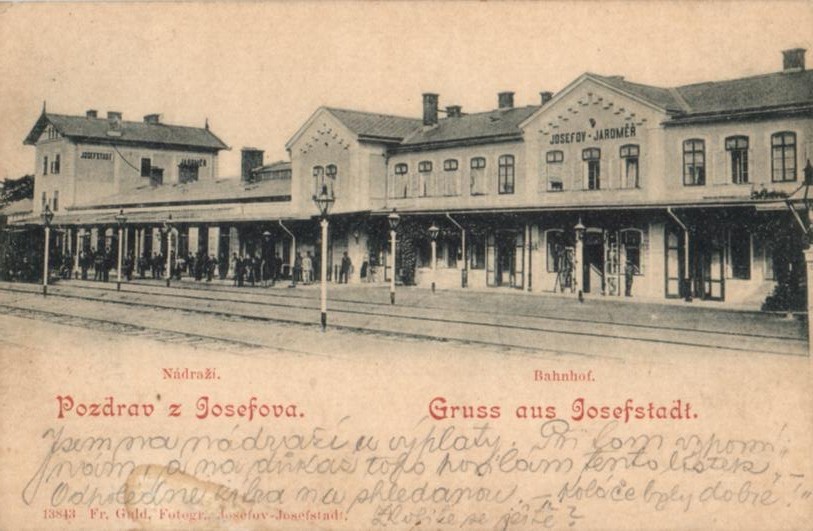 JOSEFSTADT JAROMĚŘ
JOSEFOV-JAROMĚŘ
Nádraží. Bahnhof.
Pozdrav z Josefova. Gruss aus Josefstadt.
Jsem na nádraží u výplaty. Při tom
a na důkaz toho posílám tento lístek.
Odpoledne na shledanou. – koláče byly dobré!"
13843 Fr. Guld, Fotogr., Josefov-Josefstadt.
se ještě?